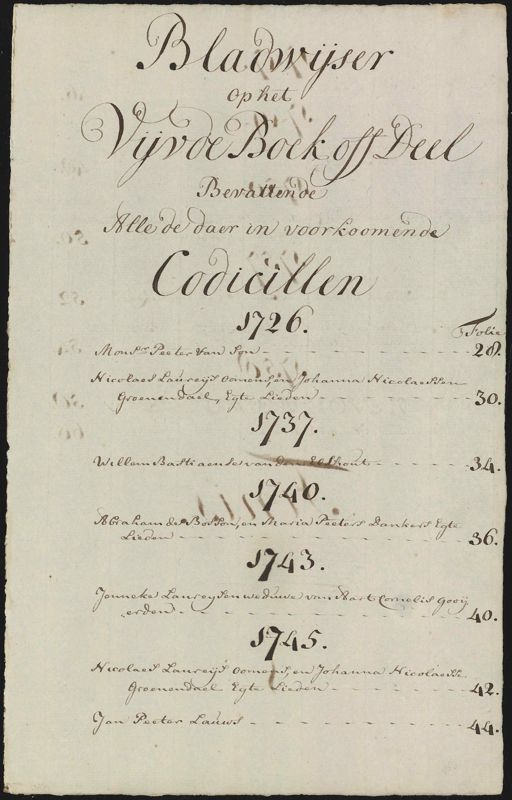 Bladwijser
op het
Vijvde Boek off Deel
Bevattende
Alle de daer in voorkoomende
Codicillen
1726.
Folie
Monsr. Peeter van Son 28.
Nicolaes Laureijs Oomens, en Johanna Nicolaessen
Groenendael, Egte Lieden 30.
1737.
Willem Bastiaense van den Elshout 34.
1740.
Abraham de Bosson, en Maria Peeters Dankers Egte
Lieden 36.
1743.
Jenneke Laureijsen weduwe van Aart Cornelis Gooij
erden 40.
1745.
Nicolaes Laureijs Oomens, en Johanna Nicolaesse
Groenendael Egte Lieden 42.
Jan Peeter Lauws 44.